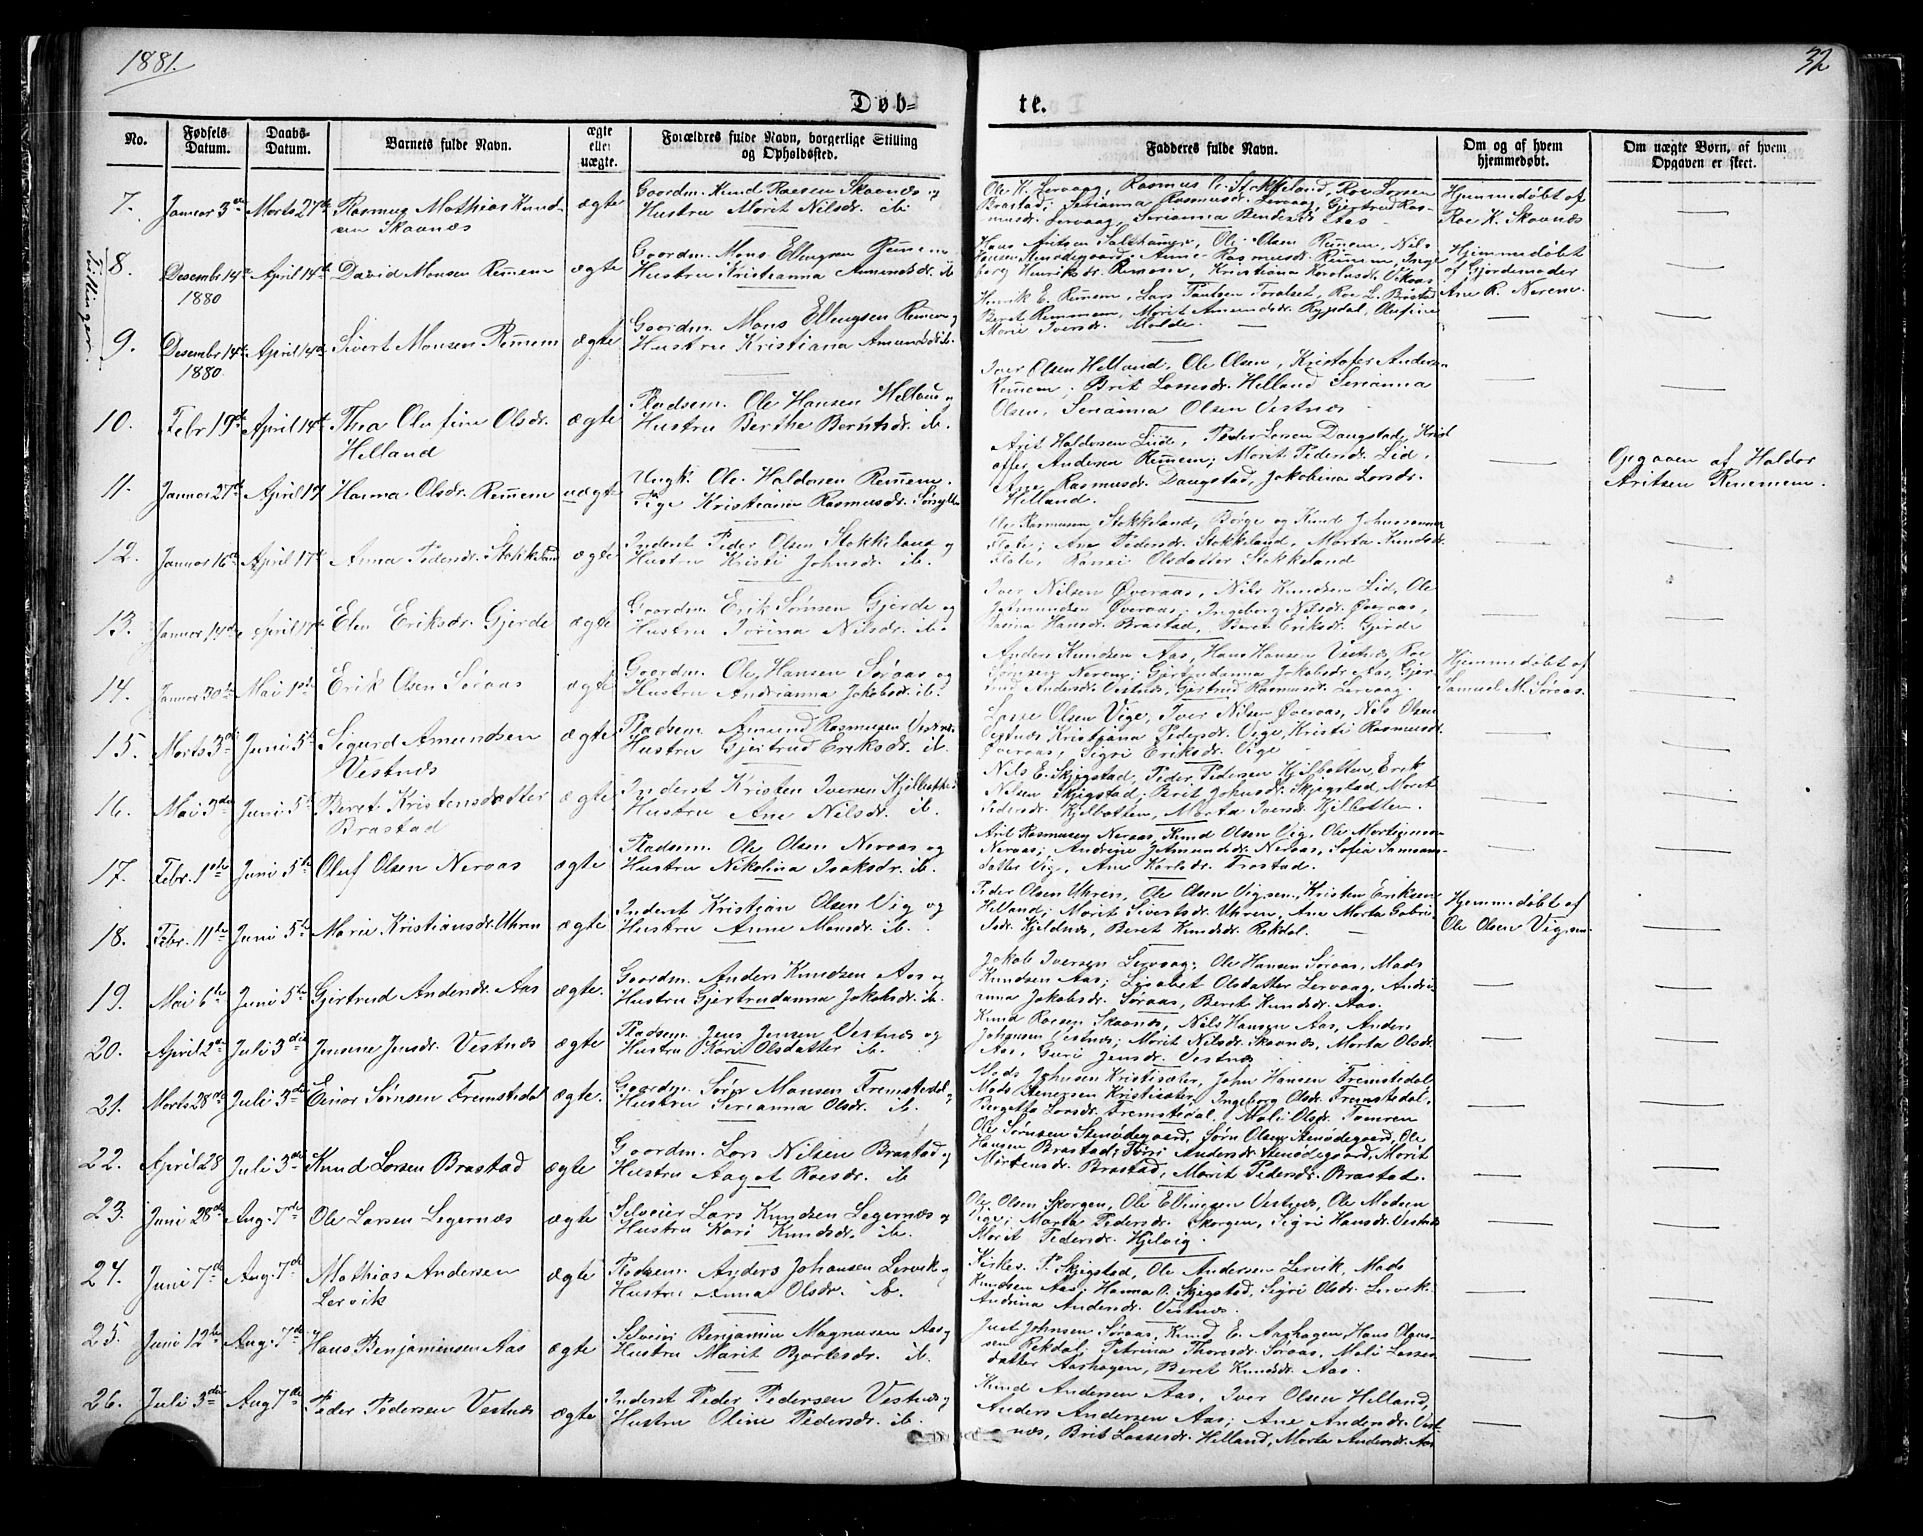 1881.
32
Døb-
te.
No.
Fødsels Datum.
Daabs-Datum.
Barnets fulde Navn.
ægte eller uægte.
Forældres fulde Navn, borgerlige Stilling og Opholdssted.
Fadderes fulde Navn.
Om og af hvem hjemmedøbt.
Om uægte Børn, af hvem Opgaven er skeet.
7. Januar 3die Marts 27de Rasmus Mathias Knud- ægte Gaardm. Knud Roesen Skaanæs og
sen Skaanæs Hustru Marit Nilsdr. ib.
Ole K. Lervaag, Rasmus Stokkeland, Roe Larsen
Brastad, Serianna Rasmusdr. Lervaag, Gjertrud Ras-
musdr. Lervaag, Serianna Aas
Hjemmedøbt af
Roe K. Skaanæs
Tvillinger
8. Desembr 14de April 14de David Monsen Remmem ægte Gaardm. Mons Ellingsen Remmem
1880 Hustru Kristianna Amundsdr. ib
Ole Olsen Remmem, Nils
Anne Rasmusdr. Remmem, Inge
borg Henriksdr. Remmem, Kristiana
Hjemmedøbt
af Gjordemoder
Ane R. Nerem
9. Desembr 14de April 14de Sivert Monsen Remmem ægte Gaardm. Mons Ellingsen Remmem og
1880 Hustru Kristiana Amundsdr. ib.
Henrik E. Remmem, Lars Roe L. Brastad
Beret Remmem, Marit Amundsdr. Rypdal, Olufine
Marie Iversdr. Molde
10. Febr 19de April 14de Thea Olufine Olsdr. ægte Pladsem. Ole Hansen Helland og
Helland Hustru Berthe Berntsdr. ib.
Iver Olsen Helland, Ole Olsen, Kristofer Anders.
Remmem, Brit Lassesdr. Helland Serianna
Olsen, Serianna Olsen Vestnæs
11. Januar 27de April 17 Hanna Olsdr. Remmem uægte Ungk. Ole Haldorsen Remmem
Pige Kristiana Rasmusdr.
Arit Haldorsen Lid, Peder Larsen Daugstad, Krist
offer Andersen Remmem; Marit Pedersdr. Lid,
Ane Rasmusdr. Daugstad, Jakobina Larsdr.
Helland.
Opgaven af Haldor
Aritsen Remmem.
12. Januar 16de April 17de Anna Pedersdr. Stokkeland ægte Inderst Peder Olsen Stokkeland og
Hustru Kristi Johnsdr. ib.
Ole Rasmusen Stokkeland, Børge og Knud
Flate; Ane Pedersdr. Stokkeland, Marta Knudsdr.
Flate, Olsdatter Stokkeland
13. Januar 14de April 17de Elen Eriksdr. Gjerde ægte Gaardm. Erik Sørnsen Gjerde og
Hustru Jorina Nilsdr. ib.
Iver Nilsen Øveraas, Nils Knudsen Lid, Ole
Øveraas; Ingeborg Nilsdr. Øveraas,
Hansdr. Brastad, Beret Eriksdr. Gjerde
14. Januar 30te Mai 1ste Erik Olsen Søraas ægte Gaardm. Ole Hansen Søraas og
Hustru Andrianna Jakobsdr. ib.
Anders Knudsen Aas, Hans Hansen Vestnæs, Roe
Nerem; Gjertrudanna Jakobsdr. Aas, Gjer
trud Andersdr. Vestnæs, Gjertrud Rasmusdr. Lervaag.
Hjemmedøbt af
Samuel M. Søraas.
15. Marts 3die Juni 5te Sigurd Amundsen ægte Pladsem. Amund Rasmusen Vestnæs
Vestnæs Hustru Gjertrud Eriksdr. ib.
Lasse Olsen Vige, Iver Nilsen Øveraas, Nils Olsen
Vestnæs, Kristjana Pedersdr. Vige, Kristi Rasmusdr.
Øveraas, Sigri Eriksdr. Vige
16. Mai 3die Juni 5te Beret Kristensdatter ægte Inderst Kristen Iversen
Brastad Hustru Ane Nilsdr. ib.
Nils E. Skjegstad, Peder Pedersen Kjelbotten, Erik
Nilsen Skjegstad; Brit Johnsdr. Skjegstad, Marit
Pedersdr. Kjelbotten, Marta Iversdr. Kjelbotten.
17. Febr. 1ste Juni 5te Oluf Olsen Neraas ægte Pladsem. Ole Olsen Neraas og
Hustru Nikolina Isaksdr. ib.
Arit Rasmusen Neraas, Knud Olsen Vig, Ole
Neraas; Andrine Amundsdr. Neraas, Sofia Samsons-
datter Vig, Ane Karlsdr. Trostad.
18. Febr. 11te Juni 5te Marie Kristiansdr. Uhren ægte Inderst Kristjan Olsen Vig og
Hustru Anne Monsdr. ib.
Peder Olsen Uhren, Ole Olsen Kristen Eriksen
Helland; Marit Sivertsdr. Uhren, Ane Marta Gabri-
elsdr. Kjeldnæs, Beret Knudsdr. Rekdal.
Hjemmedøbt af
Ole Olsen
19. Mai 6te Juni 5te Gjertrud Andersdr. Aas ægte. Gaardm. Anders Knudsen Aas og
Hustru Gjertrudanna Jakobsdr. ib.
Jakob Iversen Lervaag, Ole Hansen Søraas, Mads
Knudsen Aas; Lisabet Olsdatter Lervaag, Andri-
anna Jakobsdr. Søraas, Beret Knudsdr. Aas.
20. April 2den Juli 3die Jensine Jensdr. Vestnæs ægte Pladsem. Jens Jensen Vestnæs og
Hustru Kari Olsdatter ib.
Knud Roesen Skaanæs, Nils Hansen Aas, Anders
Johansen Vestnæs; Marit Nilsdr. Skaanæs, Marta Olsdr.
Aas, Guri Jensdr. Vestnæs
21. Marts 28de Juli 3die Einar Sørnsen Fremstedal ægte. Gaardm. Sørn Monsen Fremstedal,
Hustru Serianna Olsdr. ib.
Mads Johnsen Kristisæter, John Hansen Fremstedal,
Mads Stenersen Kristisæter, Ingeborg Olsdr. Fremstedal,
Bergitta Larsdr. Fremstedal, Mali Olsdr. Tomren
22. April 28 Juli 3die Knud Larsen Brastad ægte Gaardm. Lars Nilsen Brastad og
Hustru Aagot Roesdr. ib
Ole Sørnsen Stenødegaard, Sørn Olsen Stenødegaard, Ole
Hansen Brastad; Andersdr. Stenødegaard, Marit
Brastad, Marit Pedersdr. Brastad.
23. Juni 28de Aug. 7de Ole Larsen Legernæs ægte Selveier Lars Knudsen Legernæs og
Hustru Kari Knudsdr. ib.
Ole Olsen Skorgen, Ole Ellingsen Vestnæs, Ole Madsen
Vige; Marta Pedersdr. Skorgen, Sigri Hansdr. Vestnæs
Marit Pedersdr. Hjelvig.
24. Juni 7de Aug. 7de Mathias Andersen ægte Pladsem. Anders Johansen Lervik og
Lervik Hustru Anna Olsdr. ib.
P. Skjegstad, Ole Andersen Lervik, Mads
Knudsen Aas; Hanna O. Skjegstad, Sigri Olsdr. Lervik.
Andrina Andersdr. Vestnæs.
25. Juni 12te Aug. 7de Hans Benjaminsen Aas ægte Selveier Benjamin Magnusen Aas og
Hustru Marit Bjørtesdr. ib.
Just Johnsen Søraas, Knud E. Aarhagen, Hans Olaus-
sen Rekdal; Petrina Thoresdr. Søraas, Mali Lasses-
datter Aarhagen, Beret Knudsdr. Aas.
26. Juli 3die Aug 7de Peder Pedersen Vestnæs ægte Inderst Peder Pedersen Vestnæs og
Hustru Oline Pedersdr. ib.
Knud Andersen Aas, Iver Olsen Helland,
Anders Andersen Aas; Ane Andersdr. Vest-
næs, Brit Lassesdr. Helland, Marta Andersdr. Aas